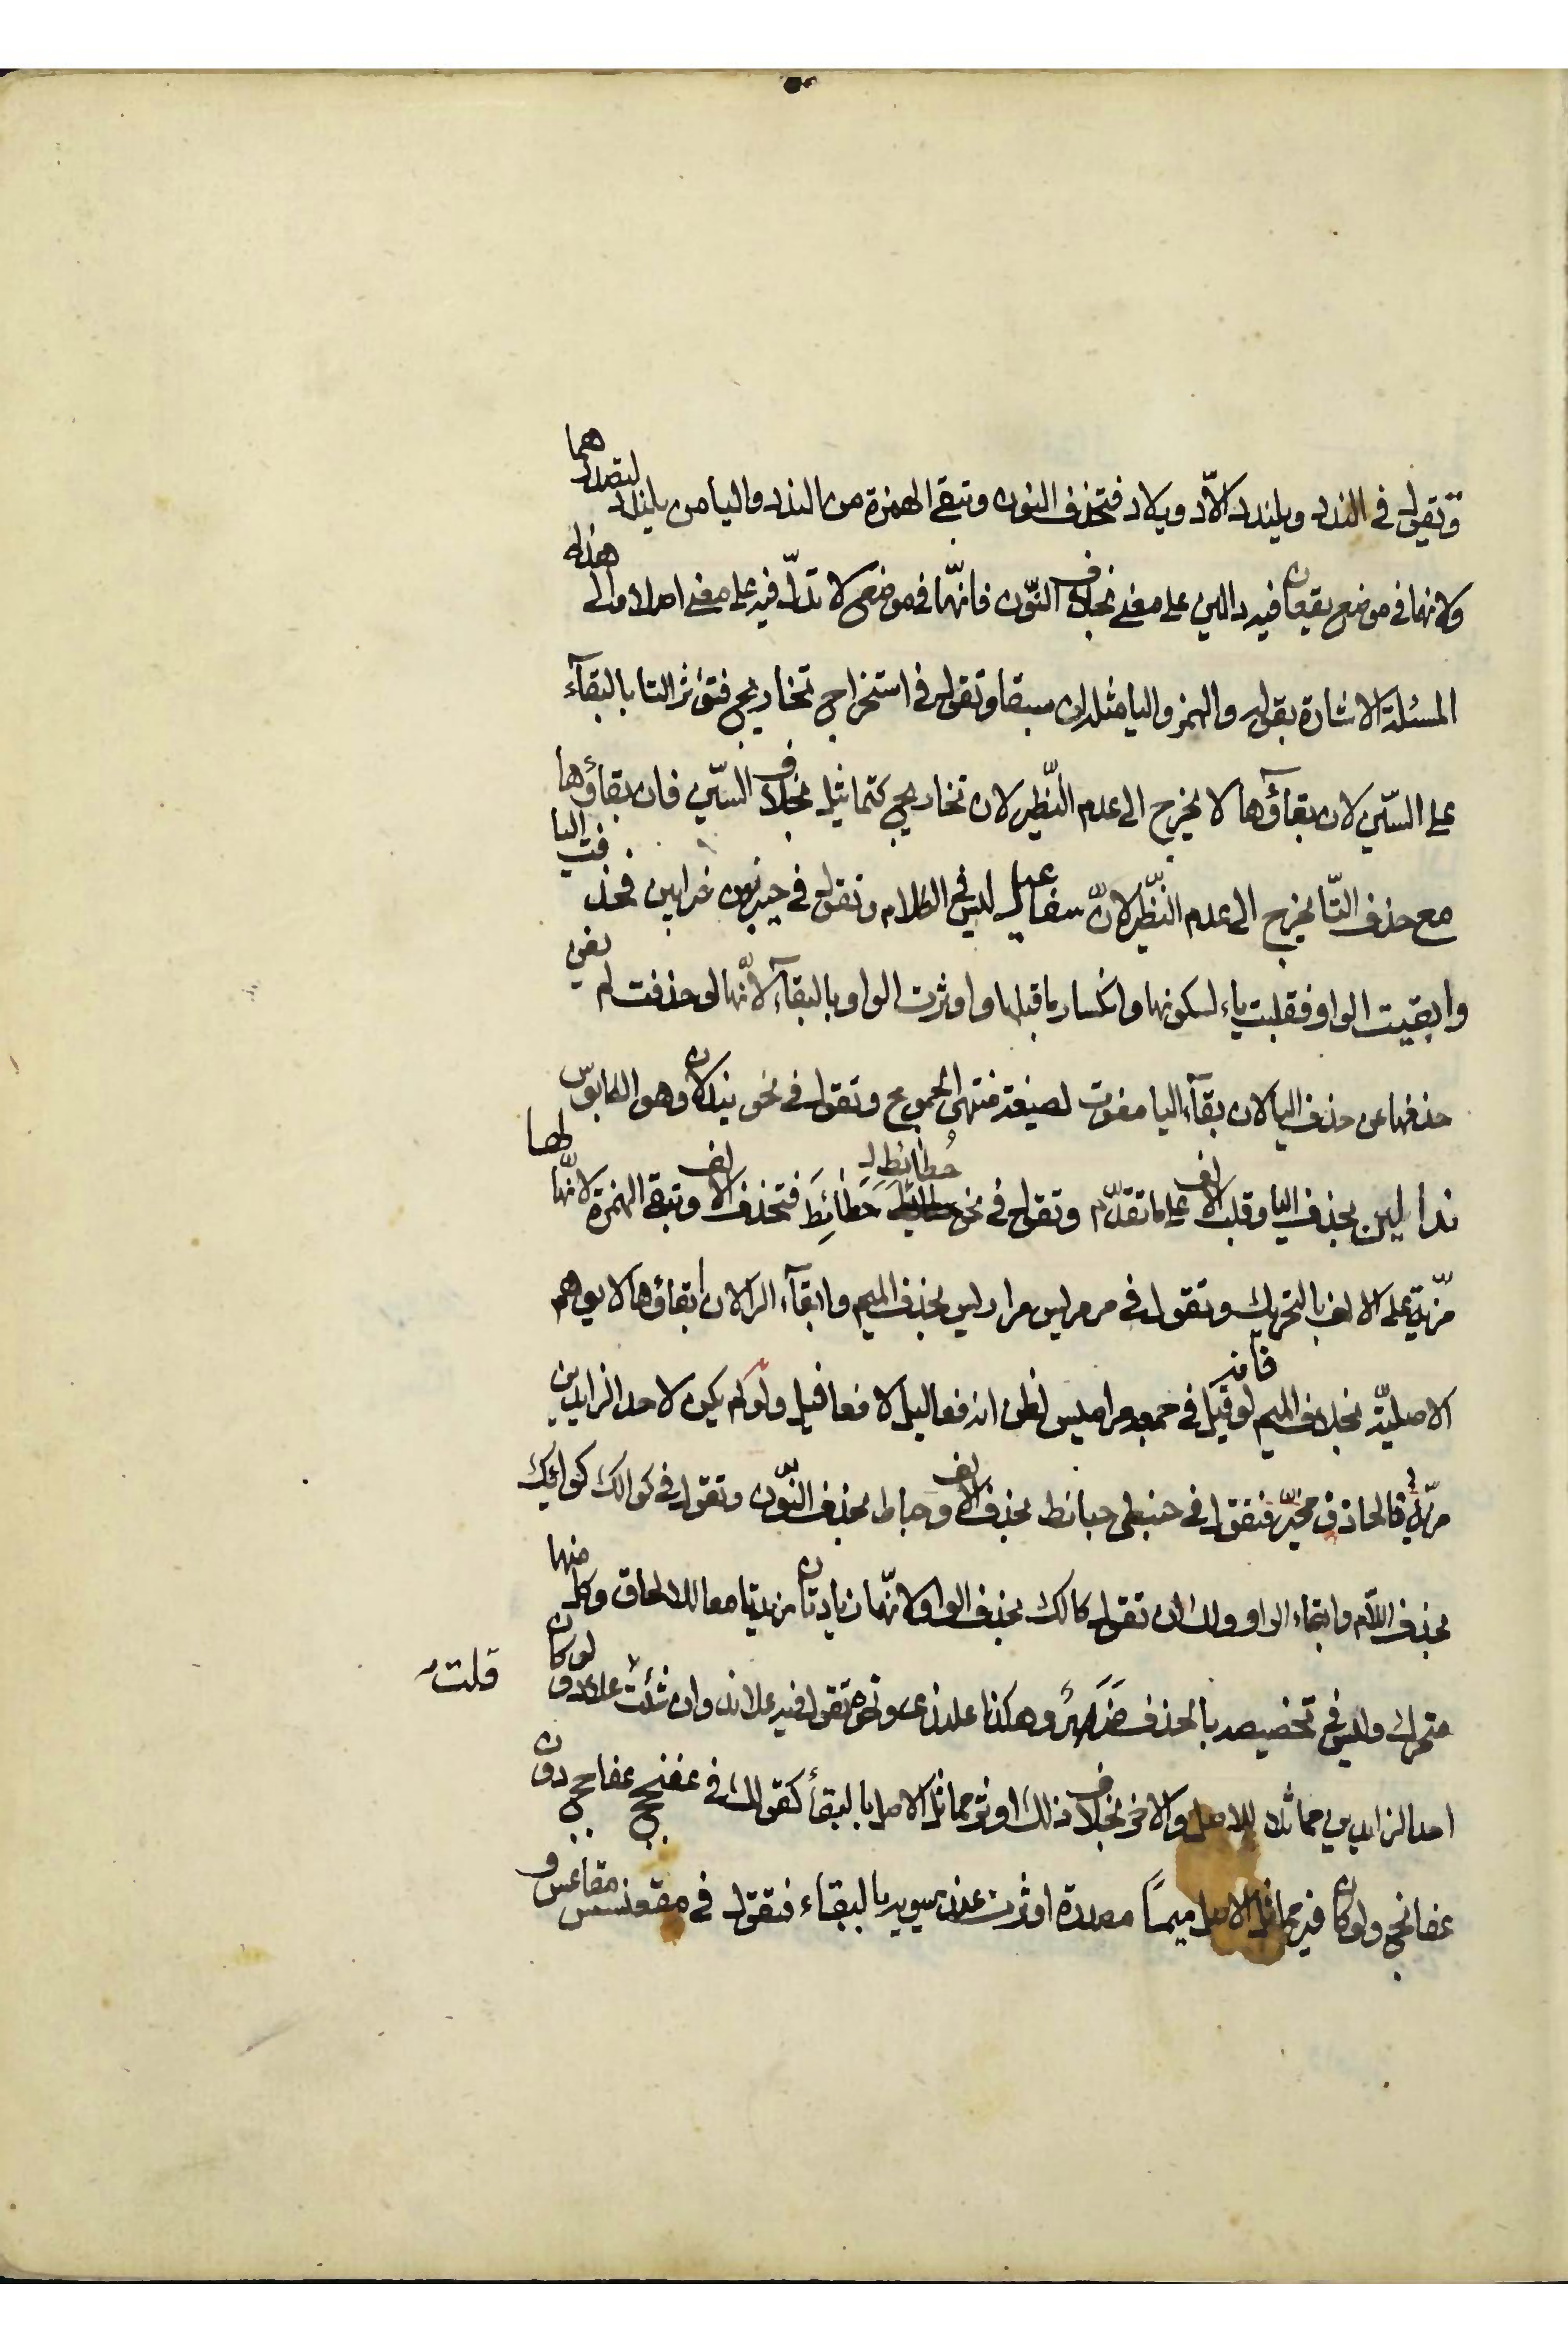 وتقول في الندد ويلندد الادّ ويلاد فتحذف النون وتبقى الهمزة من الندد واليا من يلندد لتصدرهما
ولانهما في موضع يقعان فيه دالين على معنى بخلاف النّون فانّها في موضع لا تدلّ فيه على معنى اصلا والى هذه
المسئلة الاشارة بقوله والهمز واليا مثله ان سبقا وتقول في استخراج تخاريج فتؤثر التا بالبقآء
على السّين لان بقآؤها لا يخرج الى عدم النّظير لان تخاريج كتماثيل بخلاف السّين فان بقاؤها
مع حذف التّا يخرج الى عدم النّظير لانّ سفاعيل ليس في الكلام وتقول في حيزبون حزابين فحذفت اليا
وابقيت الواو فقلبت ياء لسكونها وانكسار ما قبلها واوثرت الواو بالبقآء لانّها لو حذفت لم يغن
حذفها عن حذف اليا لان بقآء اليا مفوت لصيغة منتهى الجموع وتقول في نحو نيدلان وهو الكابوس
ندالين بحذف اليا وقلب الالف على ما تقدّم وتقول في نحو حُطائِط لـ حَطَائِطَ فتحذف الالف وتبقى الهمزة لانّ لها
مزيّة على الالف بالتحريك وتقول في مرمريس مراريس بحذف الميم وابقآء الرا لان ابقاؤها لا يوهم
الاصليّة بخلاف الميم فانه لو قيل في جمعه مراميس لظن انه فعاليل لا فعافيل ولو لم يكن لاحد الزايدين
مزيّة فالحاذف مخيّر فنقول في حنبطى حبانط بحذف الالف وحباط بحذف النّون وتقول في كوالك كوائك
بحذف اللّام وابقاء الواو ولك ان تقول كالك بحذف الواو لانّهما زيادتان مزيدتا معا للالحاق وكل منها
متحرك وليس في تخصيصه بالحذف ضَرَرٌ وهكذا علندى ونحوه تقول فيه علاند وان شئت قلت علاد ولو كان
احد الزايدين مماثلا للاصل والاخر بخلاف ذلك اوثر مماثل الاصل بالبقأ كقولك في عفنجج عفاجج دون
عفانج ولو كان غير مماثل الاصل ميمًا مصدرة اوثرت عند سيبويه بالبقاء فتقول في مقعنسس مقاعس و